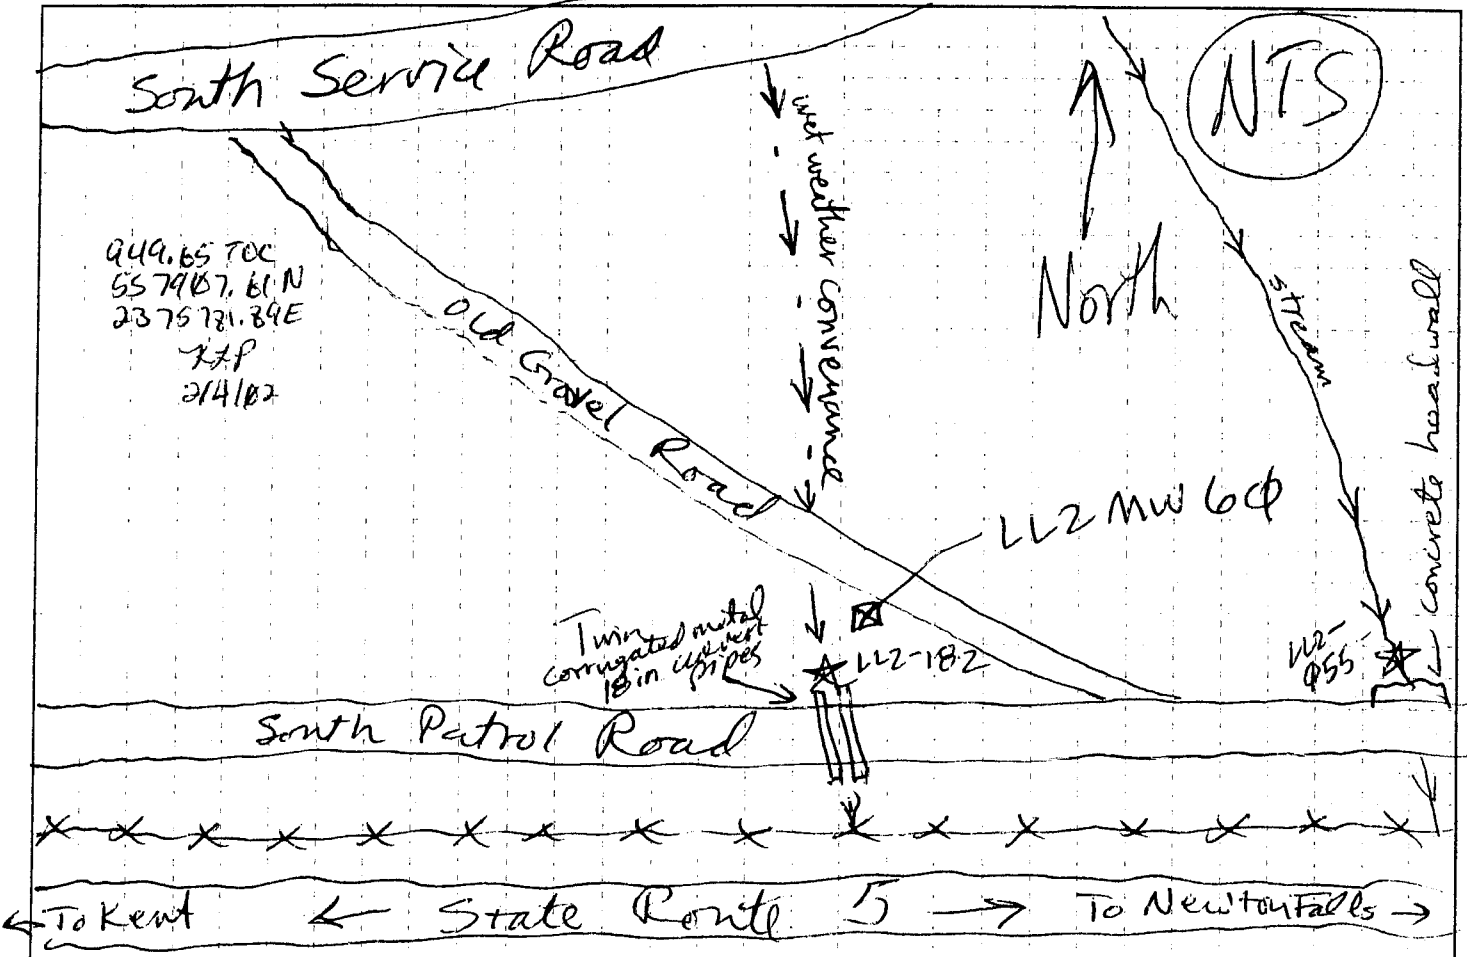 South Service Road
NTS
wet weather conveyance
North
stream
949.65 TOC
557907.61 N
2375781.89E
KXP
2/4/02
Old Gravel Road
concrete headwall
LL2 MW 60
Twin
corrugated metal
18 in culvert
pipes
LL2-182
LL2-
055
South Patrol Road
To Kent ← State Route 5 → To Newton Falls →